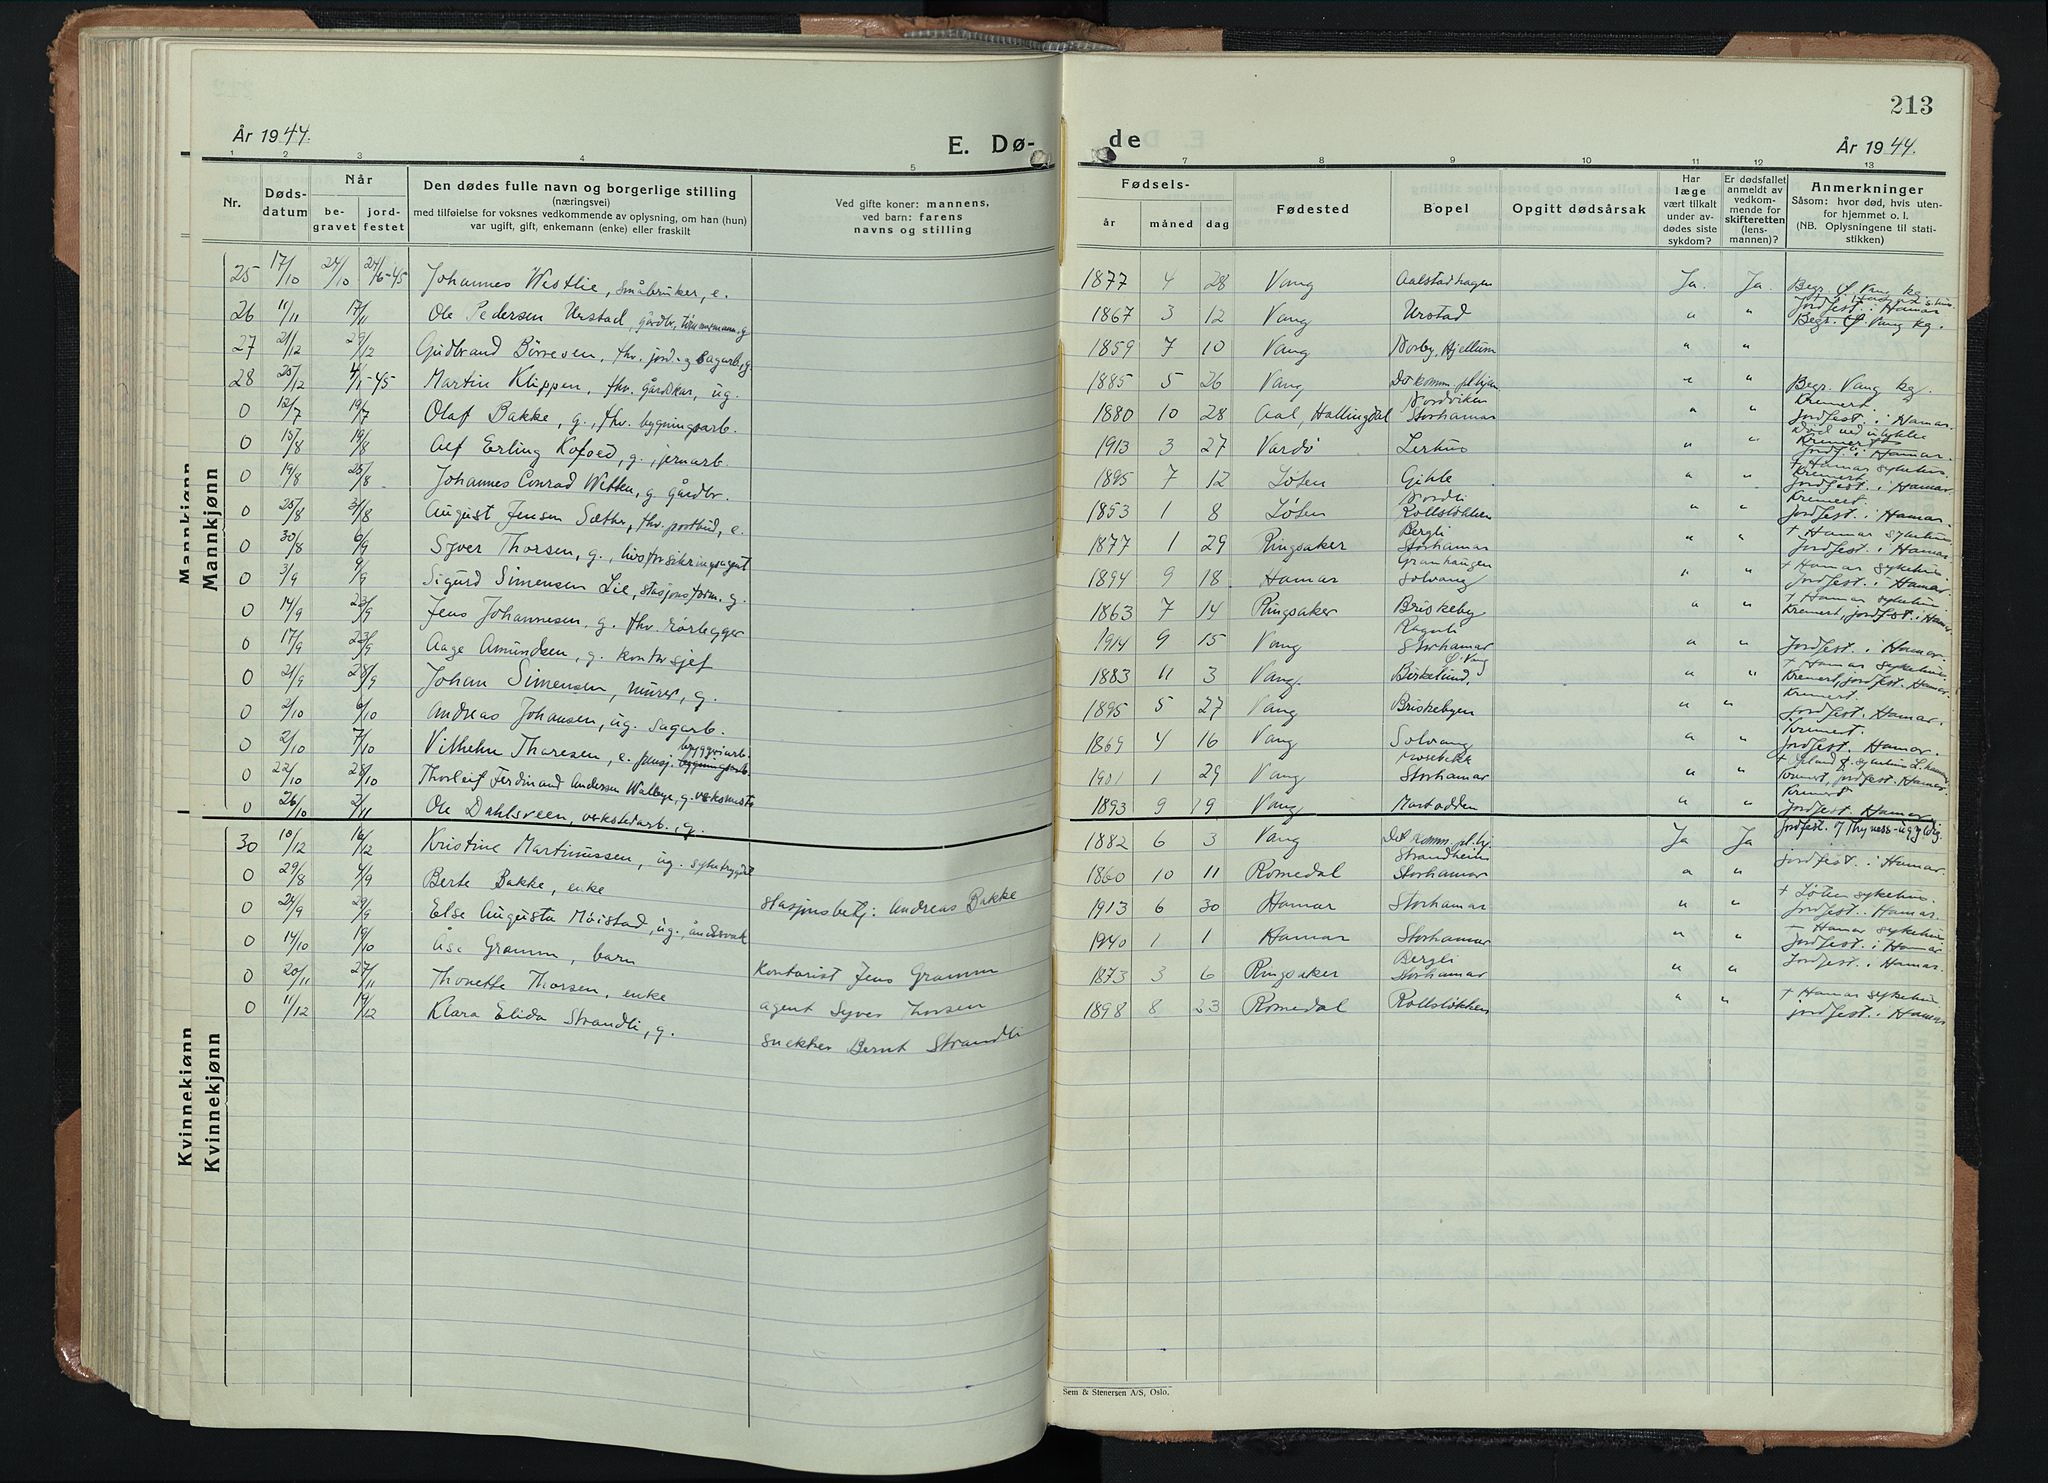 År 1944.
E. Dø-
1 2 3 4 5
Nr.
Døds-
datum
Når
be-
gravet
jord-
festet
Den dødes fulle navn og borgerlige stilling
(næringsvei)
med tilføielse for voksnes vedkommende av oplysning, om han (hun)
var ugift, gift, enkemann (enke) eller fraskilt
Ved gifte koner: mannens,
ved barn: farens
navns og stilling
Mannkjønn
Mannkjønn
25 17/10 24/10 24/6-45 Johannes Westlie, småbruker, e.
26 11/11 17/11 Ole Pedersen Urstad, gårdbr. tømmermann, g
27 21/12 29/12 Gudbrand Børresen, fhv. jord- og sagarb, g.
28 25/12 4/1-45 Martin Klippen, fhv. gårdskar, ug.
0 12/7 19/7 Olaf Bakke, g., fhv. bygningsarb.
0 15/8 19/8 Alf Erling Kofoed, g., jernarb.
0 19/8 25/8 Johannes Conrad Witten, g. gårdbr.
0 25/8 31/8 August Jensen Sæther, fhv. postbud, e.
0 30/8 6/9 Syver Thorsen, g., livsforsikringsagent
0 3/9 9/9 Sigurd Simensen Lie, stasjonsform. g.
0 14/9 23/9 Jens Johannesen, g. fhv. rørlegger
0 17/9 23/9 Aage Amundsen, g. kontorsjef
0 21/9 28/9 Johan Simensen, murer, g.
0 2/10 6/10 Andreas Johansen, ug. sagarb.
0 2/10 7/10 Vilhelm Thoresen, e. pensj. bryggeriarb.
0 22/10 28/10 Thorleif Ferdinand Andersen Walbye, g. verksmester
0 26/10 2/11 Ole Dahlsveen, verkstedarb., g.
Kvinnekjønn
Kvinnekjønn
30 10/12 16/12 Kristine Martinussen, ug. syketrygdet
0 29/8 4/9 Berte Bakke, enke stasjonsbetj: Andreas Bakke
0 24/9 29/9 Else Augusta Moistad, ug., åndssvak
0 14/10 19/10 Åse Gramm, barn Kontorist Jens Gramm
0 20/11 27/11 Thonette Thorsen, enke agent Syver Thorsen
0 11/12 19/12 Klara Elida Strandli, g. snekker Bernt Strandli
213
de
År 1944.
7 8 9 10 11 12 13
Fødsels-
år måned dag
Fødested
Bopel
Opgitt dødsårsak
Har
læge
vært tilkalt
under av-
dødes siste
sykdom?
Er dødsfallet
anmeldt av
vedkom-
mende for
skifteretten
(lens-
mannen)?
Anmerkninger
Såsom: hvor død, hvis uten-
for hjemmet o. l.
(NB. Oplysningene til stati-
stikken)
1877 4 28 Vang Aalstadhagen Ja. Ja. Begr. Ø. Vang kg.
1867 3 12 Vang Urstad " " Jordfest. i Hamar
Begr. Ø Vang kg.
1859 7 10 Vang Norby, Hjellum " "
1885 5 26 Vang De komm. pl.hjem " " Begr. Vang kg.
1880 10 28 Aal, Hallingdal Nordviken Storhamar " " Kremert Jordfest. i Hamar.
1913 3 27 Vardø Lerhus " " Død ved ulykke Kremert Jordf. i Hamar.
1895 7 12 Løten Gihle " " + Hamar sykehus Kremert Jordfest. i Hamar.
1853 1 8 Løten Nordli Rollsløkken " " Kremert Jordfest. i Hamar.
1877 1 29 Ringsaker Bergli Storhamar " " + Hamar sykehus Jordfest. i Hamar
1894 9 18 Hamar Granhaugen Solvang " " + Hamar sykehus Jordfest. i Hamar.
1863 7 14 Ringsaker Briskeby " " + Hamar sykehus Kremert, jordfest. i Hamar.
1914 9 15 Vang Storhamar " " Jordfest. i Hamar.
1883 11 3 Vang. Birkelund, Ø. Vang " " + Hamar sykehus Kremert, jordfest. Hamar.
1895 5 27 Vang Briskebyen " " Kremert Jordfest. Hamar.
1869 4 16 Vang Solvang " " Kremert. Jordfest. Hamar.
1901 1 29 Vang Storhamar " " Kremert, jordfest. Hamar.
1893 9 19 Vang Martodden " " Kremert Jordfest Hamar
1882 6 3 Vang Det komm. pl.hj. Ja Ja Jordfest. af Thyness-ugyldig.
1860 10 11 Romedal Strandheim Storhamar " " jordfest. i Hamar.
1913 6 30 Hamar Storhamar " " + Løten sykehus. Jordfest. Hamar.
1940 1 1 Hamar Storhamar " " + Hamar sykehus Jordfest. i Hamar
1873 3 6 Ringsaker Bergli Storhamar " " Jordfest. i Hamar.
1898 8 23 Romedal Rollsløkken " " + Hamar sykehus jordfest. i Hamar
Sem & Stenersen A/S, Oslo.